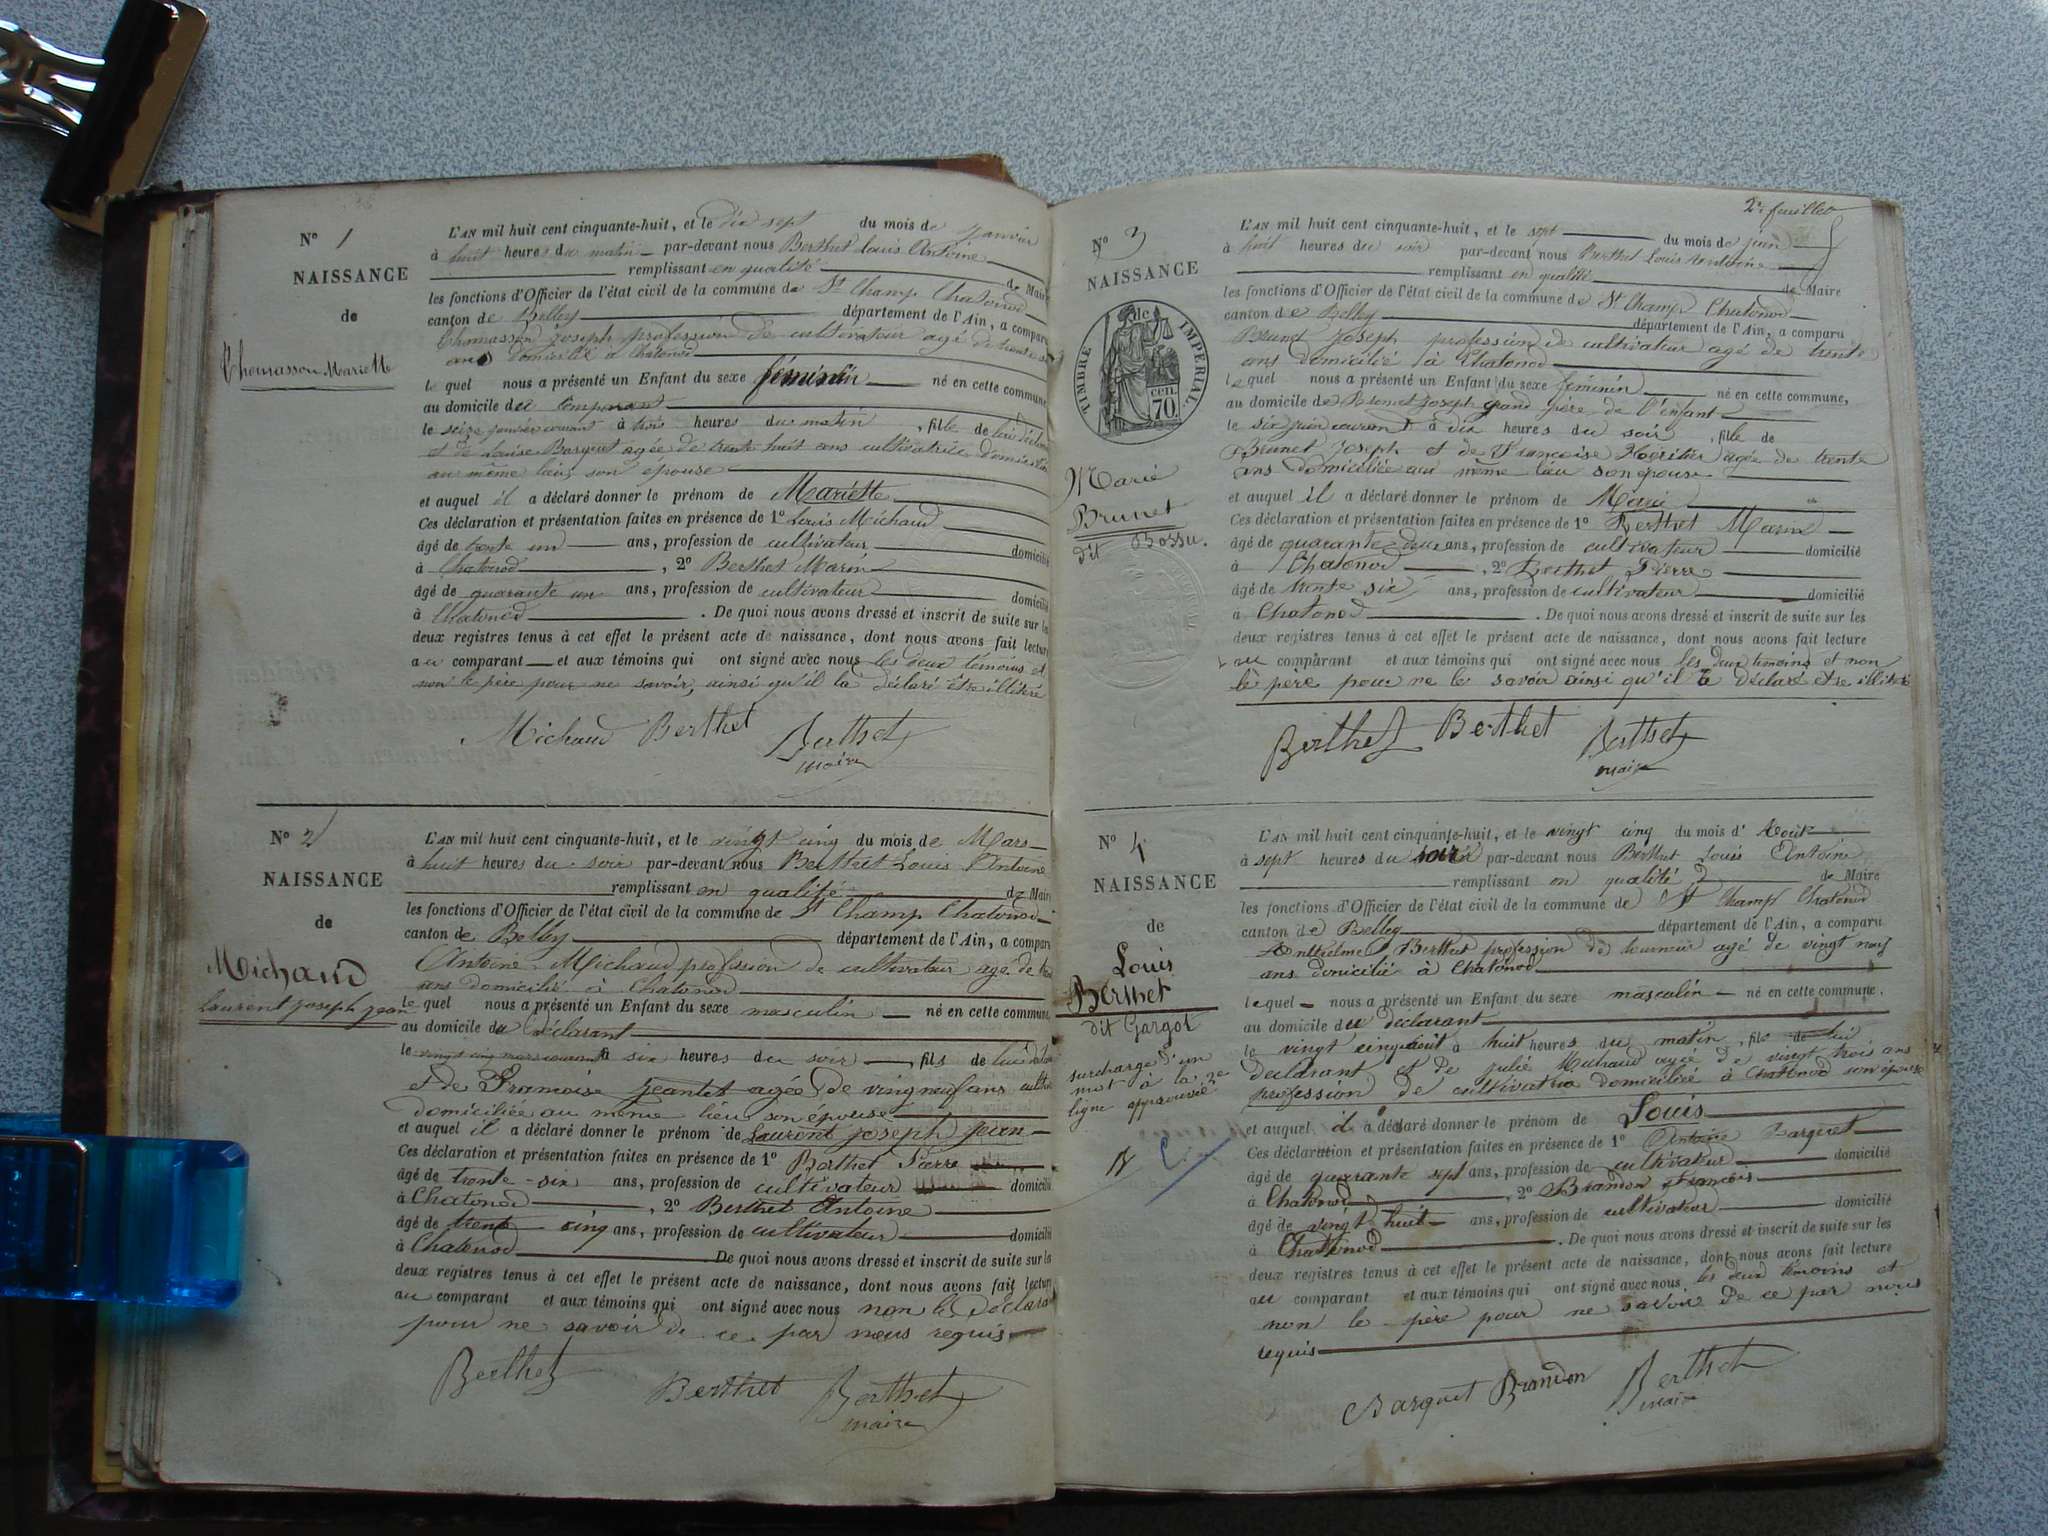 N° 1
NAISSANCE
de
Thomasson Marie M
L'AN mil huit cent cinquante-huit, et le dix sept du mois de Janvier
à huit heures du matin par-devant nous Berthet Louis Antoine
remplissant en qualité de Maire
les fonctions d'Officier de l'état civil de la commune de St Champ Chatonod
canton de Belley département de l'Ain, a comparu
Thomasson Joseph profession de cultivateur agé de trente
ans domicilié à Chatonod
le quel nous a présenté un Enfant du sexe féminin né en cette commune
au domicile du comparant
le seize janvier courant à trois heures du matin, fille de lui
et de Louise Barquet agée de trente huit ans cultivatrice
au même lieu, son épouse
et auquel il a déclaré donner le prénom de Mariette
Ces déclaration et présentation faites en présence de 1° Louis Michaud
âgé de trente un ans, profession de cultivateur domicilié
à Chatonod, 2° Berthet Marin
âgé de quarante un ans, profession de cultivateur domicilié
à Chatonod. De quoi nous avons dressé et inscrit de suite sur les
deux registres tenus à cet effet le présent acte de naissance, dont nous avons fait lecture
au comparant et aux témoins qui ont signé avec nous les deux témoins et
non le père pour ne savoir, ainsi qu'il la déclaré être illitéré
Michaud Berthet Berthet
maire
N° 2
NAISSANCE
de
Michaud
Laurent Joseph Jean
L'AN mil huit cent cinquante-huit, et le vingt cinq du mois de Mars
à huit heures du soir par-devant nous Berthet Louis Antoine
remplissant en qualité de Maire
les fonctions d'Officier de l'état civil de la commune de St Champ Chatonod
canton de Belley département de l'Ain, a comparu
Antoine Michaud profession de cultivateur agé de
ans domicilié à Chatonod
le quel nous a présenté un Enfant du sexe masculin né en cette commune,
au domicile du déclarant
le vingt cinq mars courant à six heures du soir, fils de lui
et de Francoise Jeantet agée de vingt neuf ans
domiciliée au même lieu son épouse
et auquel il a déclaré donner le prénom de Laurent Joseph Jean
Ces déclaration et présentation faites en présence de 1° Berthet Pierre
âgé de trente-six ans, profession de cultivateur domicilié
à Chatonod, 2° Berthet Antoine
âgé de trente cinq ans, profession de cultivateur domicilié
à Chatonod De quoi nous avons dressé et inscrit de suite sur les
deux registres tenus à cet effet le présent acte de naissance, dont nous avons fait lecture
au comparant et aux témoins qui ont signé avec nous non le déclarant
pour ne savoir de ce par nous requis
Berthet Berthet Berthet
maire
2e feuillet
N° 3
NAISSANCE
de
TIMBRE IMPERIAL
70 CEN.
Marie
Brunet
dit Bossu.
L'AN mil huit cent cinquante-huit, et le sept du mois de juin
à huit heures du soir par-devant nous Berthet Louis Antoine
remplissant en qualité de Maire
les fonctions d'Officier de l'état civil de la commune de St Champ Chatonod
canton de Belley département de l'Ain, a comparu
Brunet Joseph profession de cultivateur agé de trente
ans domicilié à Chatonod
le quel nous a présenté un Enfant du sexe féminin né en cette commune,
au domicile de Brunet Joseph grand père de l'enfant
le six juin courant à dix heures du soir, fille de
Brunet Joseph et de Francoise Héritier agée de trente
ans domiciliée au même lieu son épouse
et auquel il a déclaré donner le prénom de Marie
Ces déclaration et présentation faites en présence de 1° Berthet Marin
âgé de quarante deux ans, profession de cultivateur domicilié
à Chatonod, 2° Berthet Pierre
âgé de trente six ans, profession de cultivateur domicilié
à Chatonod. De quoi nous avons dressé et inscrit de suite sur les
deux registres tenus à cet effet le présent acte de naissance, dont nous avons fait lecture
au comparant et aux témoins qui ont signé avec nous les deux temoins et non
le père pour ne le savoir ainsi qu'il le déclaré etre illitéré
Berthet Berthet Berthet
maire
N° 4
NAISSANCE
de
Louis
Berthet
dit Gargot
surcharge d'un
mot à la 2e
ligne approuvée
L'AN mil huit cent cinquante-huit, et le vingt cinq du mois d'Aout
à sept heures du soir par-devant nous Berthet Louis Antoine
remplissant en qualité de Maire
les fonctions d'Officier de l'état civil de la commune de St Champ Chatonod
canton de Belley département de l'Ain, a comparu
Anthelme Berthet profession de tourneur agé de vingt neuf
ans domicilié à Chatonod
lequel nous a présenté un Enfant du sexe masculin né en cette commune,
au domicile du déclarant
le vingt cinq aout à huit heures du matin, fils de lui
déclarant et de Julie Michaud agée de vingt trois ans
profession de cultivatrice domiciliée à Chatonod son épouse
et auquel il a déclaré donner le prénom de Louis
Ces déclaration et présentation faites en présence de 1° Antoine Barquet
âgé de quarante sept ans, profession de cultivateur domicilié
à Chatonod, 2° Brandon Francois
âgé de vingt huit ans, profession de cultivateur domicilié
à Chatonod. De quoi nous avons dressé et inscrit de suite sur les
deux registres tenus à cet effet le présent acte de naissance, dont nous avons fait lecture
au comparant et aux témoins qui ont signé avec nous les deux témoins et
non le père pour ne savoir de ce par nous
requis
Barquet Brandon Berthet
maire